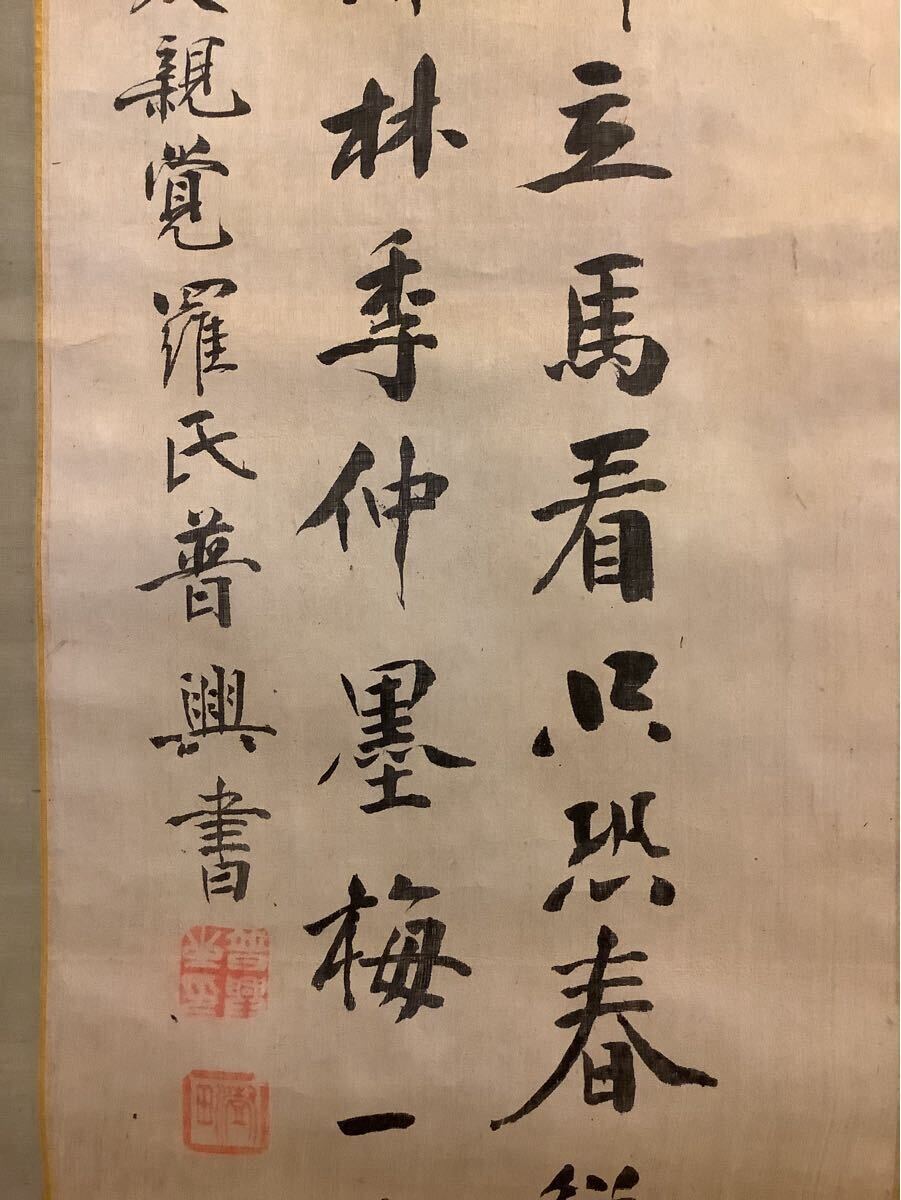 立馬看只恐春
林季仲墨梅一
親覺羅氏普興書
普興之印